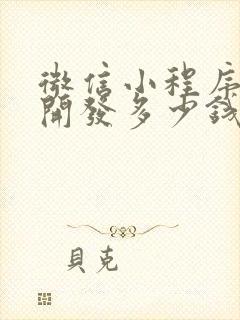 微信小程序
開發多少錢
貝克